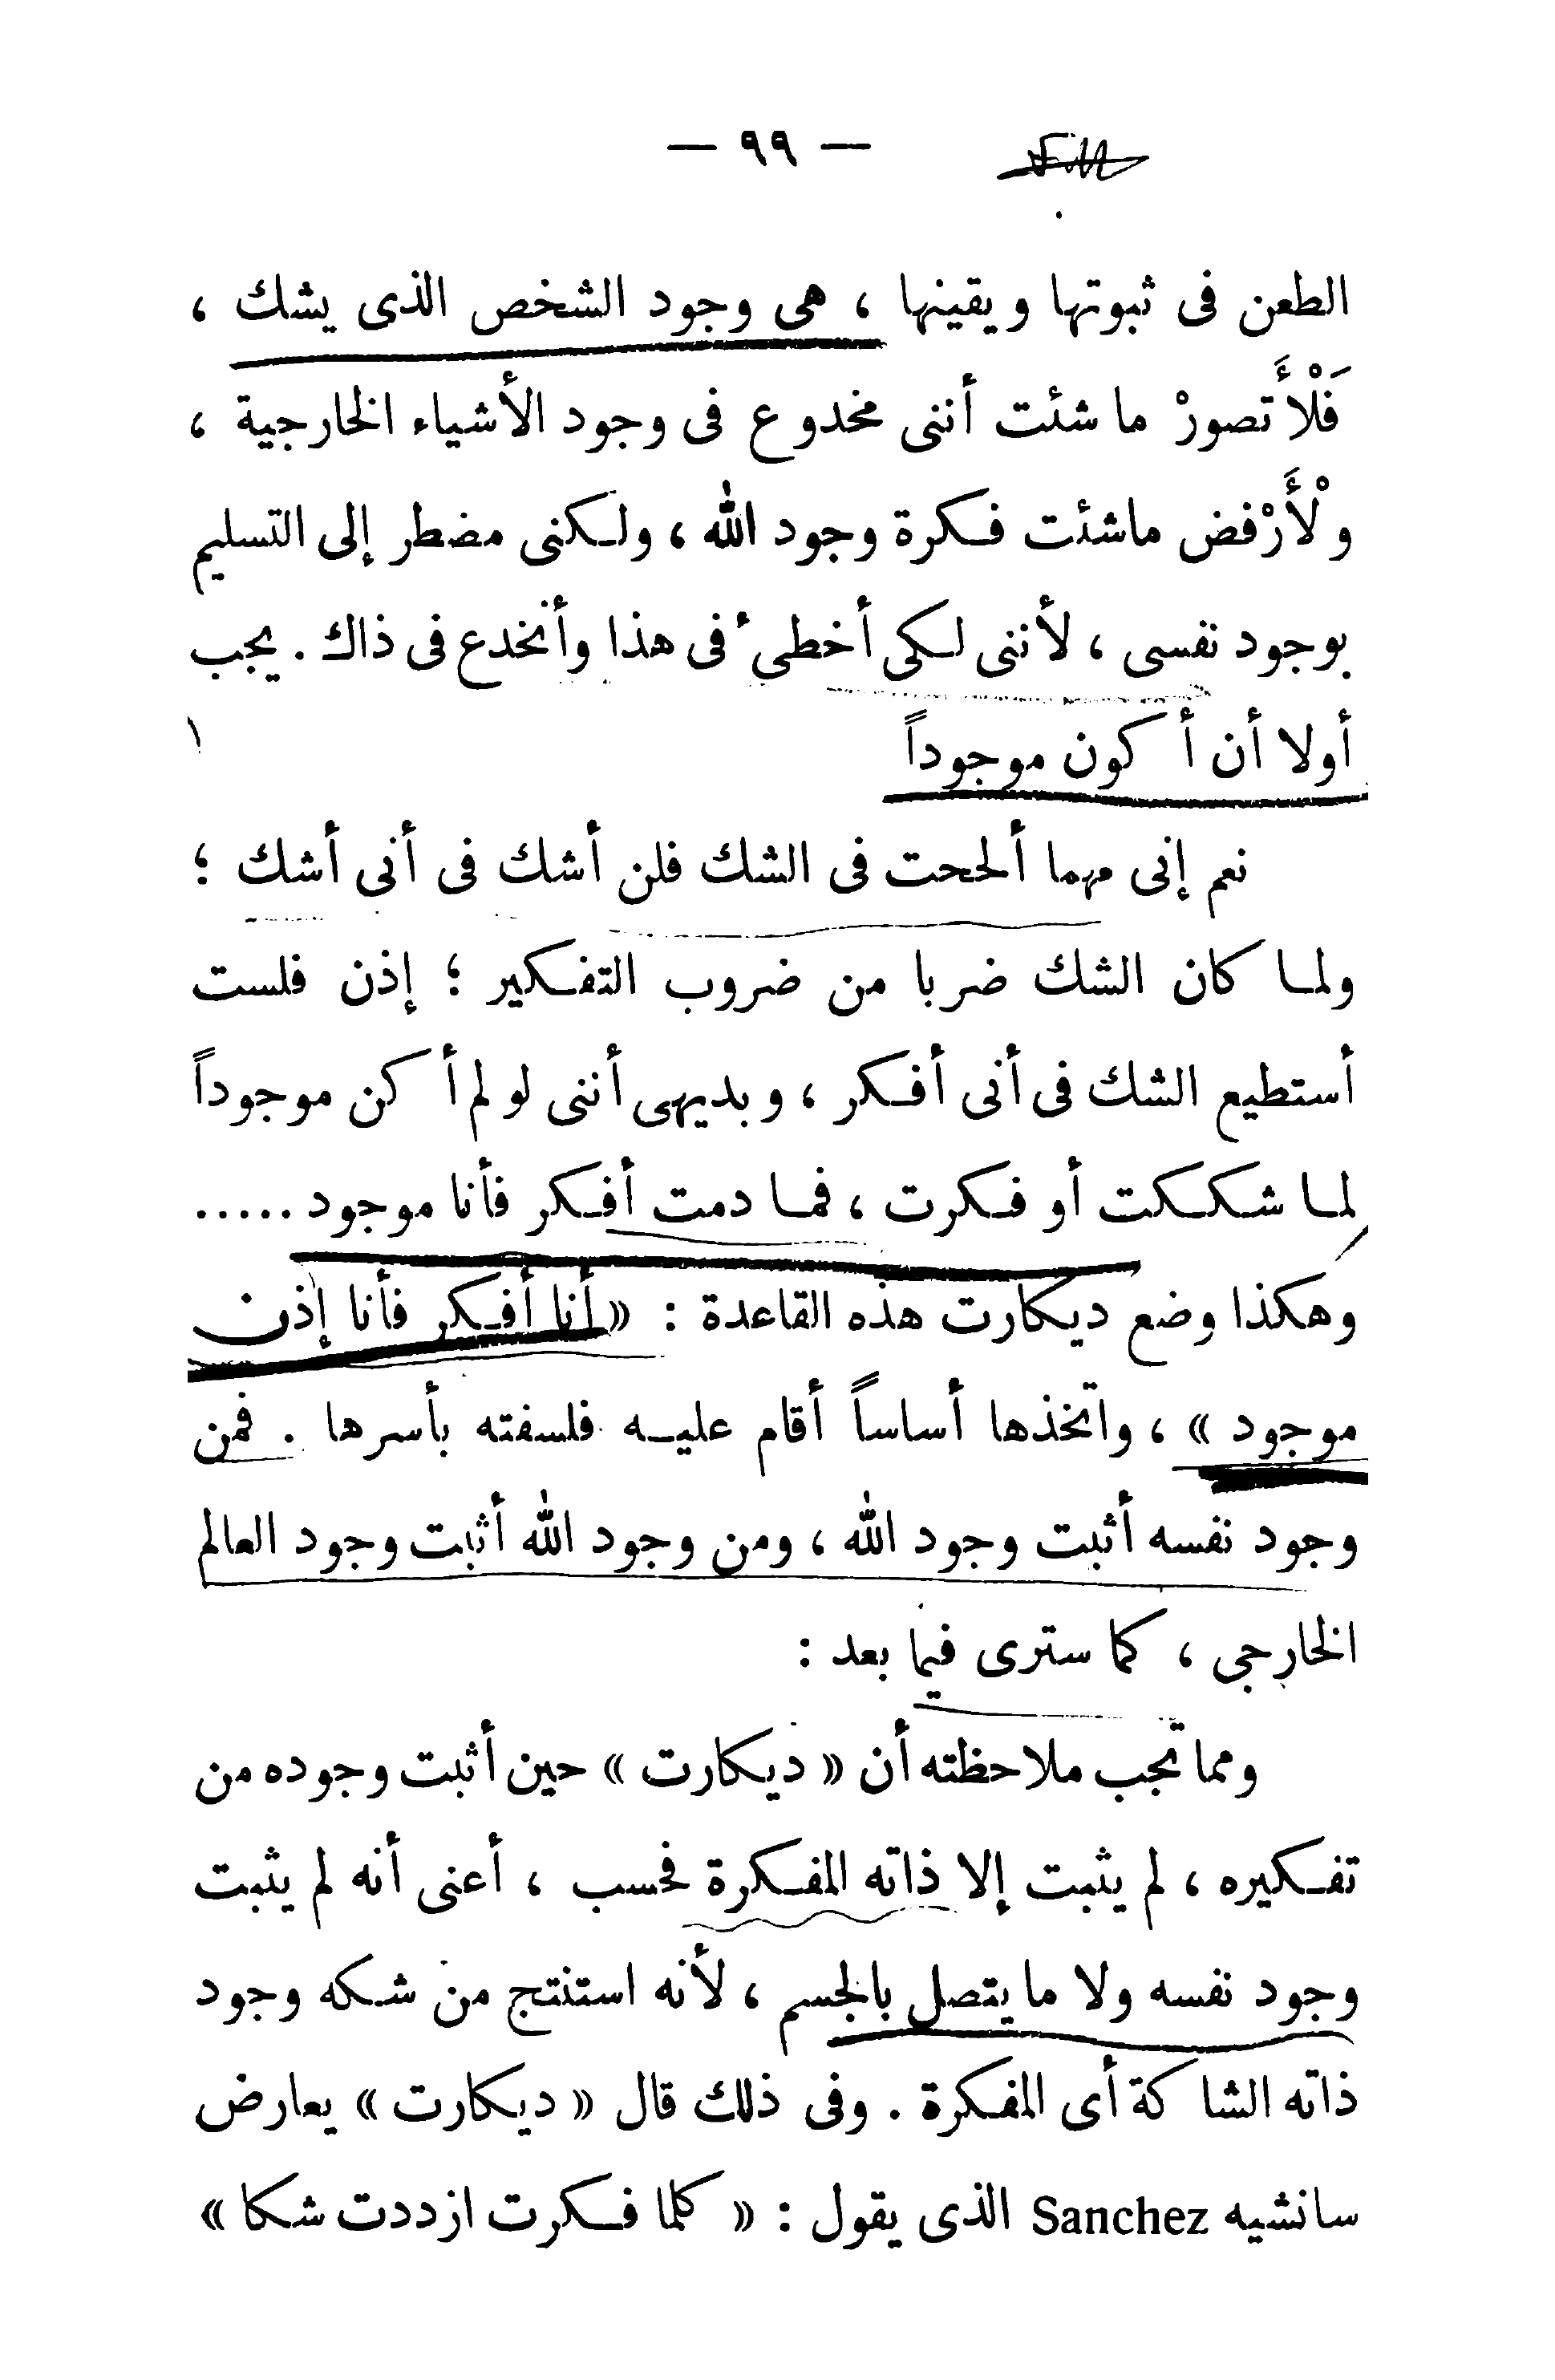 — ٩٩ —
الطعن فى ثبوتها ويقينها ، هى وجود الشخص الذى يشك ،
فَلْأَتصورْ ما شئت أننى مخدوع فى وجود الأشياء الخارجية ،
ولْأَرْفض ماشئت فكرة وجود الله ، ولكنى مضطر إلى التسليم
بوجود نفسى ، لأننى لكى أخطىء فى هذا وأنخدع فى ذاك . يجب
أولا أن أكون موجوداً
نعم إنى مهما ألححت فى الشك فلن أشك فى أنى أشك ؛
ولما كان الشك ضربا من ضروب التفكير ؛ إذن فلست
أستطيع الشك فى أنى أفكر ، وبديهى أننى لو لم أكن موجوداً
لما شككت أو فكرت ، فما دمت أفكر فأنا موجود .....
وهكذا وضع ديكارت هذه القاعدة : « أنا أفكر فأنا إذن
موجود » ، واتخذها أساساً أقام عليه فلسفته بأسرها . فمن
وجود نفسه أثبت وجود الله ، ومن وجود الله أثبت وجود العالم
الخارجى ، كما سترى فيما بعد :
ومما تجب ملاحظته أن « ديكارت » حين أثبت وجوده من
تفكيره ، لم يثبت إلا ذاته المفكرة فحسب ، أعنى أنه لم يثبت
وجود نفسه ولا ما يتصل بالجسم ، لأنه استنتج من شكه وجود
ذاته الشاكة أى المفكرة . وفى ذلك قال « ديكارت » يعارض
سانشيه Sanchez الذى يقول : « كلما فكرت ازددت شكا »